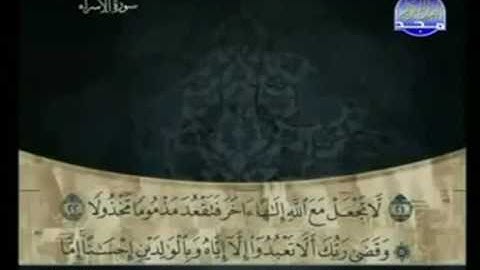 سورة الإسراء
المجد
لَّا تَجْعَلْ مَعَ اللَّهِ إِلَٰهًا ءَاخَرَ فَتَقْعُدَ مَذْمُومًا مَّخْذُولًا ﴿٢٢﴾
وَقَضَىٰ رَبُّكَ أَلَّا تَعْبُدُوٓا۟ إِلَّآ إِيَّاهُ وَبِالْوَٰلِدَيْنِ إِحْسَٰنًا ۚ إِمَّا